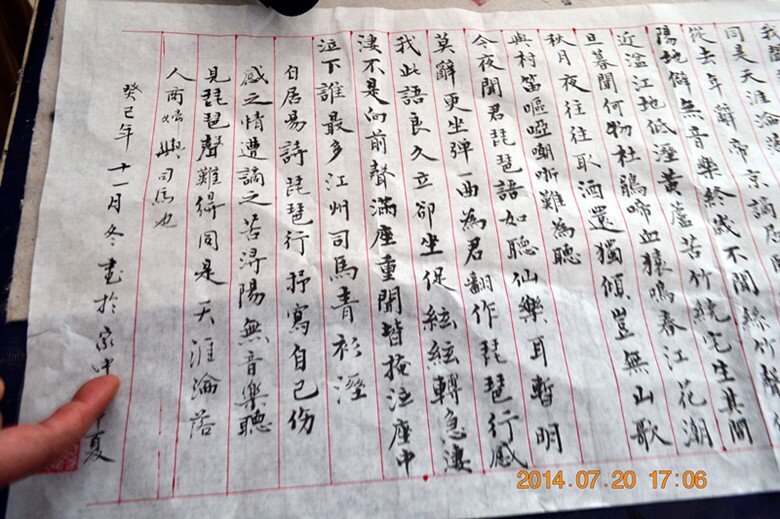 同是天涯淪落
從去年辭帝京謫居
陽地僻無音樂終歲不聞絲竹
近湓江地低溼黃蘆苦竹繞宅生其間
旦暮聞何物杜鵑啼血猿鳴春江花潮
秋月夜往往取酒還獨傾豈無山歌
與村笛嘔啞嘲哳難為聽
今夜聞君琵琶語如聽仙樂耳暫明
莫辭更坐彈一曲為君翻作琵琶行感
我此語良久立卻坐促絃絃轉急淒
淒不是向前聲滿座重聞皆掩泣座中
泣下誰最多江州司馬青衫溼
白居易詩琵琶行抒寫自己伤
感之情遭謫之苦潯陽無音樂聽
見琵琶聲難得同是天涯淪落
人商婦與司馬也
癸巳年十一月冬書於家中 夏
2014.07.20 17:06